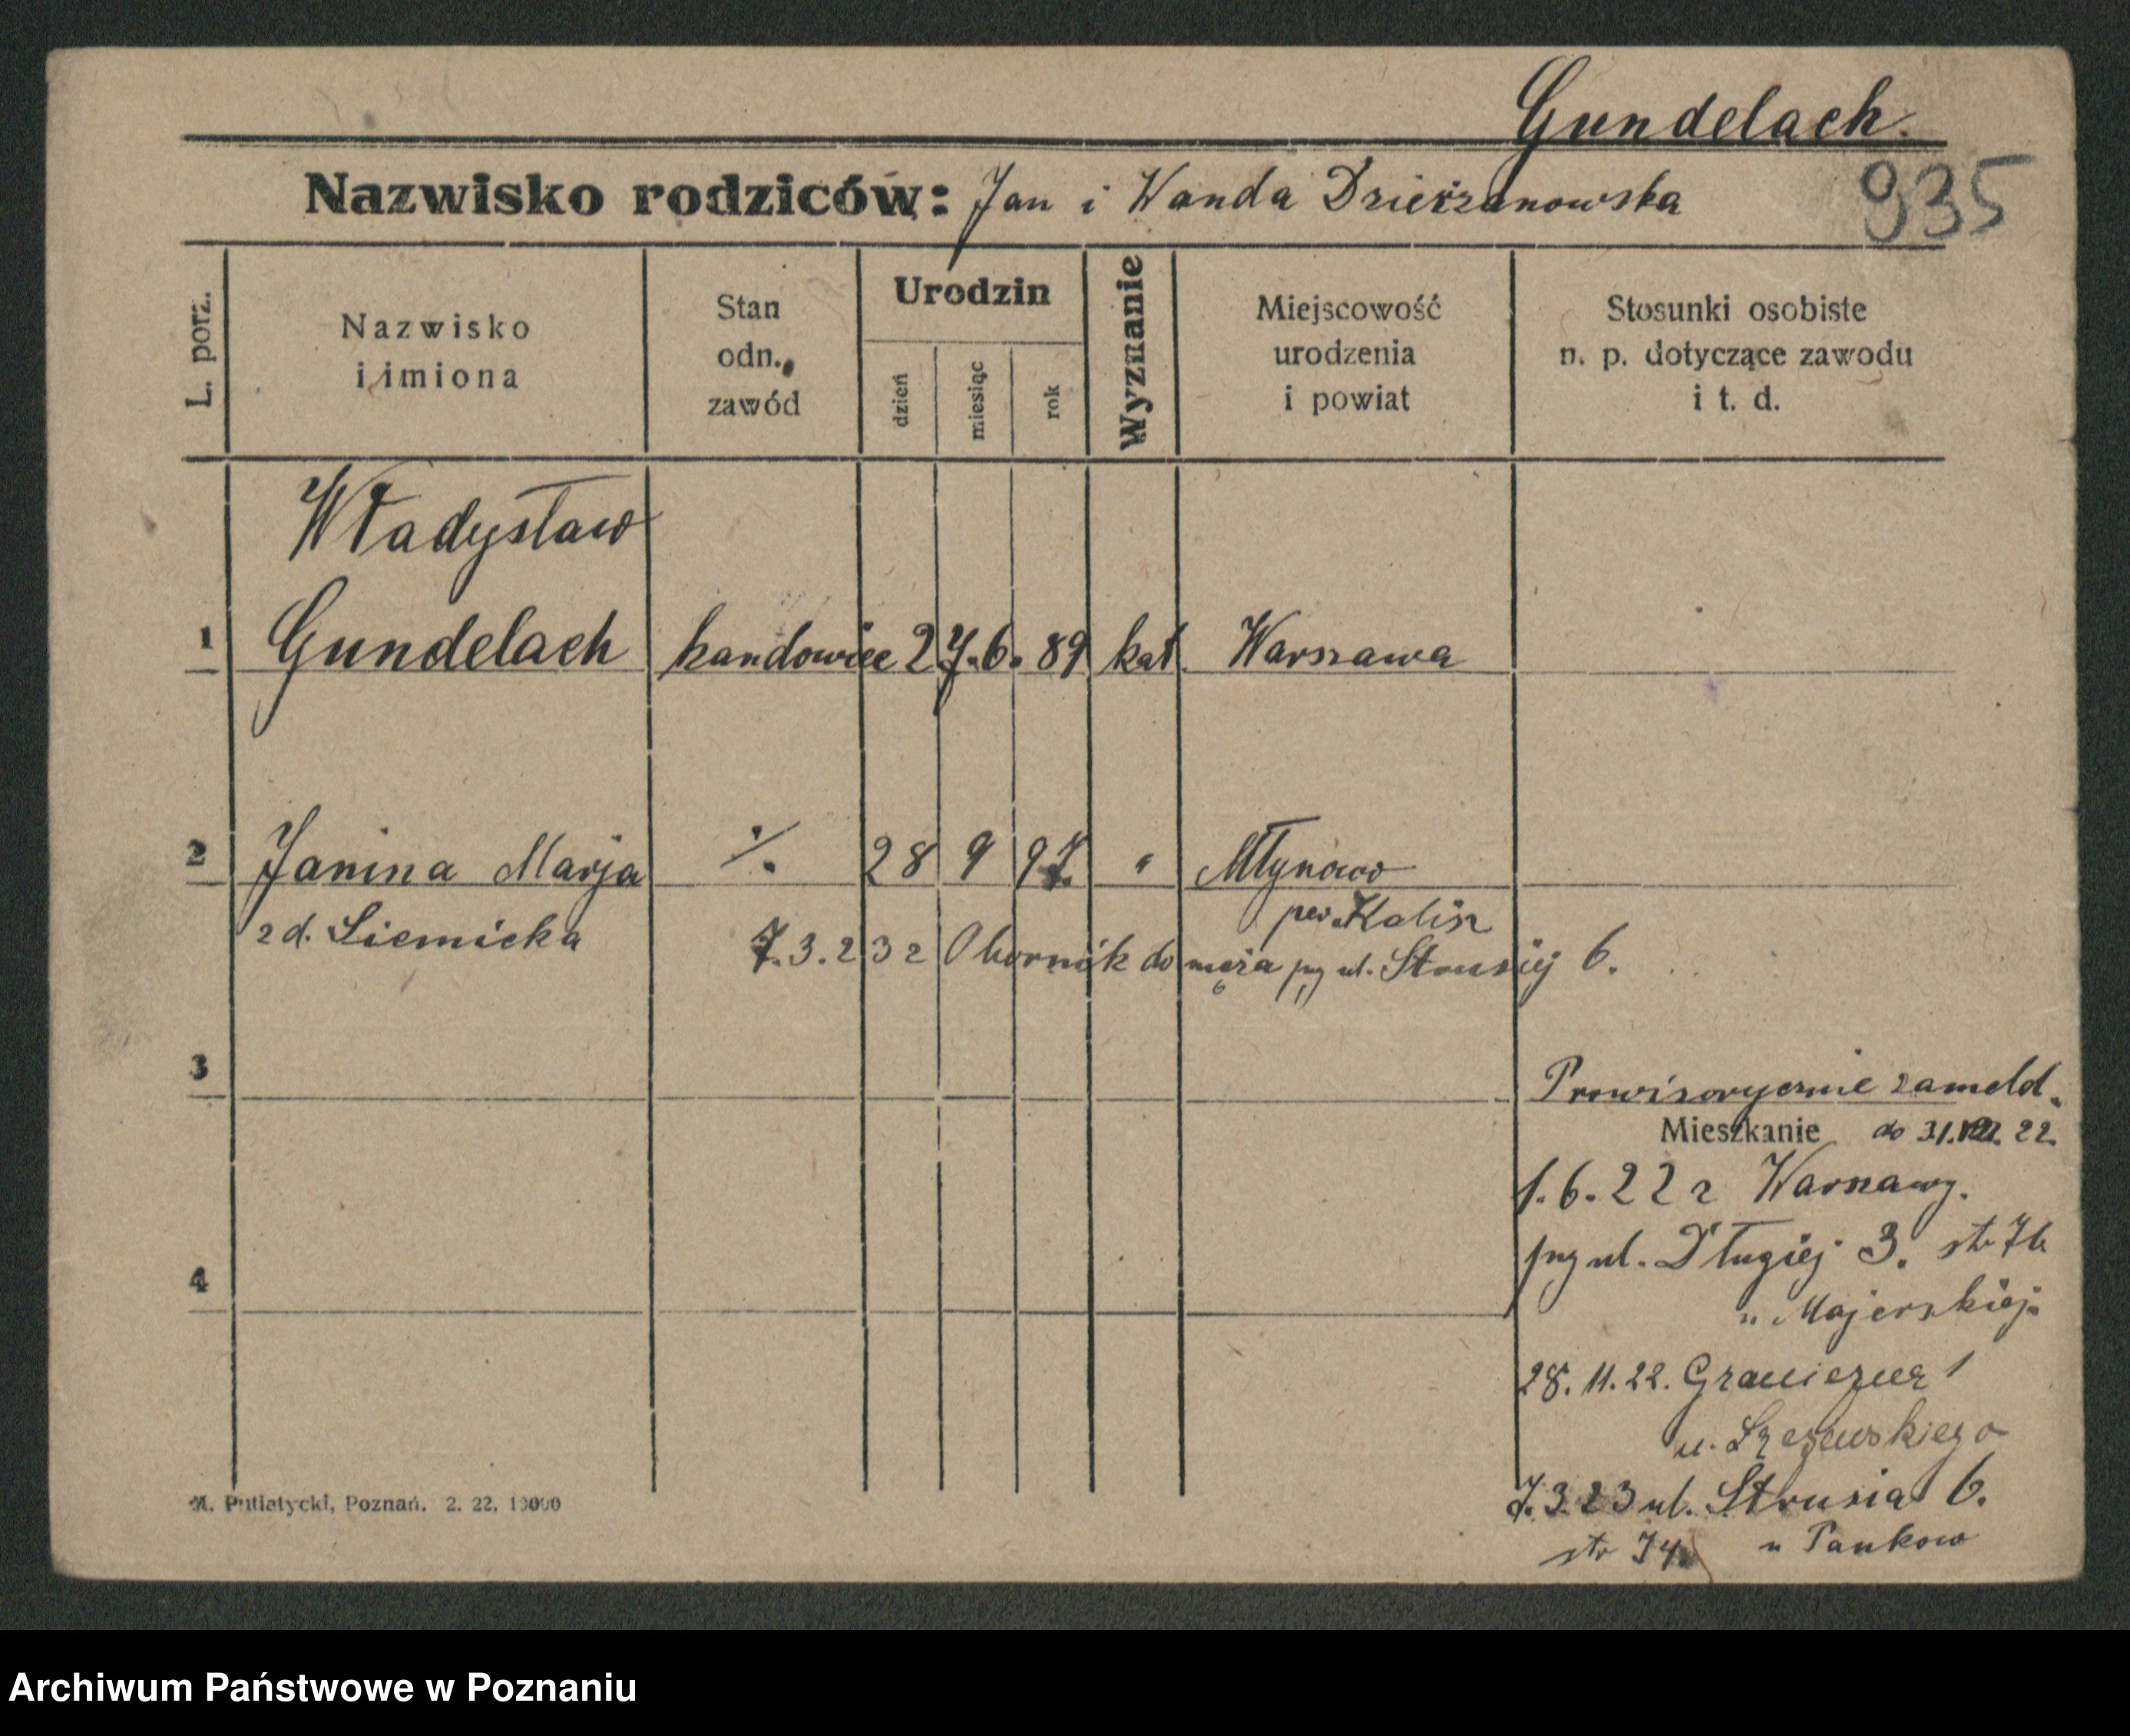 Gundelach.
Nazwisko rodziców: Jan i Wanda Dzierzanowska
935
L. porz.
Nazwisko
i imiona
Stan
odn.
zawód
Urodzin
dzień
miesiąc
rok
Wyznanie
Miejscowość
urodzenia
i powiat
Stosunki osobiste
n. p. dotyczące zawodu
i t. d.
Władysław
1 Gundelach handowiec 27. 6. 89 kat. Warszawa
2 Janina Marja ./. 28 9 97. " Młynowo
pow. Kalisz
z d. Siemicka
7.3.23 z Obornik do męża ul. Strusiej 6.
3
Prowizorycznie zameld.
Mieszkanie do 31. 22.
1.6.22 z Warszawy.
ul. Długiej 3. str 76
4
" Majerskiej
28. 11. 22. Graniczna 1
u.
7.3.23 ul. Strusia 6.
str 74 u Pankow
Putiatycki, Poznań. 2. 22. 10000
Archiwum Państwowe w Poznaniu